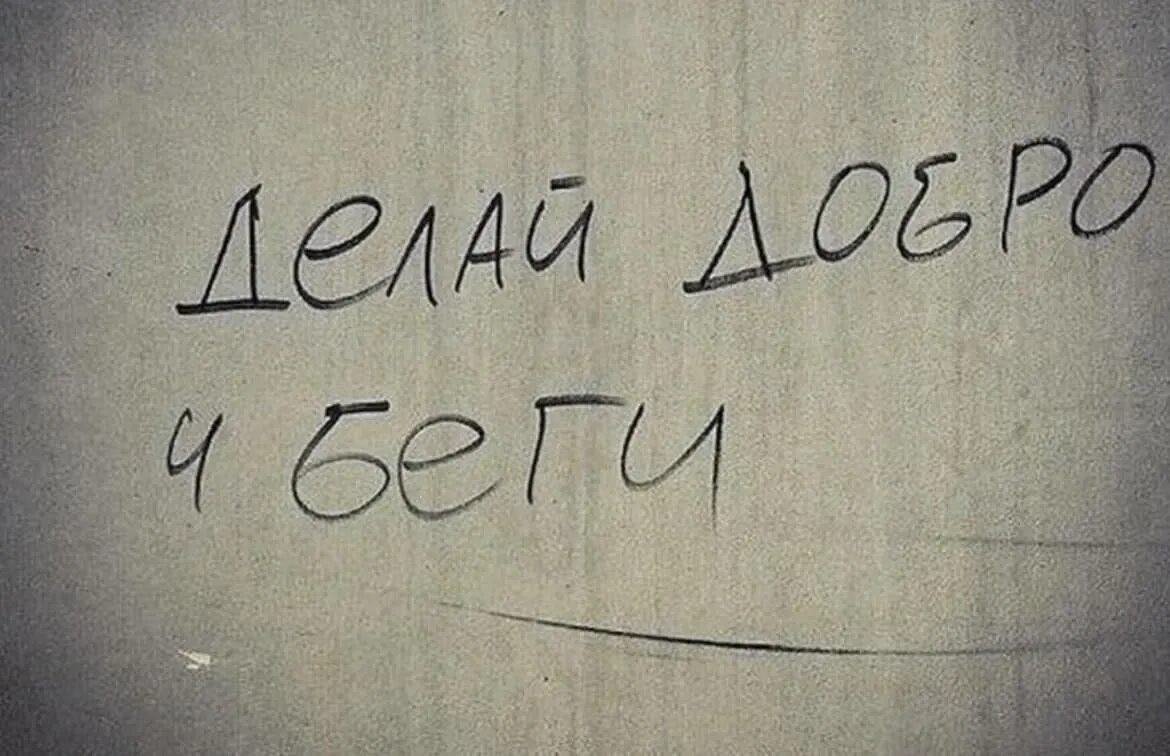 Делай добро
и беги